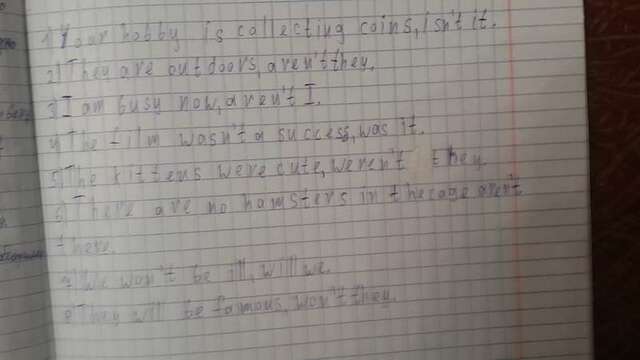 1) Your hobby is collecting coins, isn't it.
2) They are outdoors, aren't they.
3) I am busy now, aren't I.
4) The film wasn't a success, was it.
5) The kittens were cute, weren't they.
6) There are no hamsters in the cage arent
there.
7) We won't be ill, will we.
8) They will be famous, won't they.